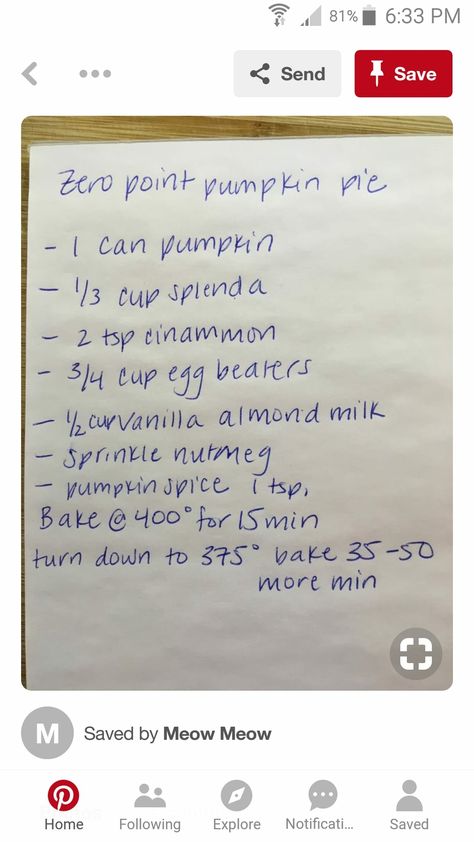 81% 6:33 PM
Send Save
Zero point pumpkin pie
- 1 can pumpkin
- 1/3 cup splenda
- 2 tsp cinammon
- 3/4 cup egg beaters
- 1/2 cup vanilla almond milk
- sprinkle nutmeg
- pumpkin spice 1 tsp.
Bake @ 400° for 15 min
turn down to 375° bake 35-50
more min
M Saved by Meow Meow
Home Following Explore Notificati... Saved